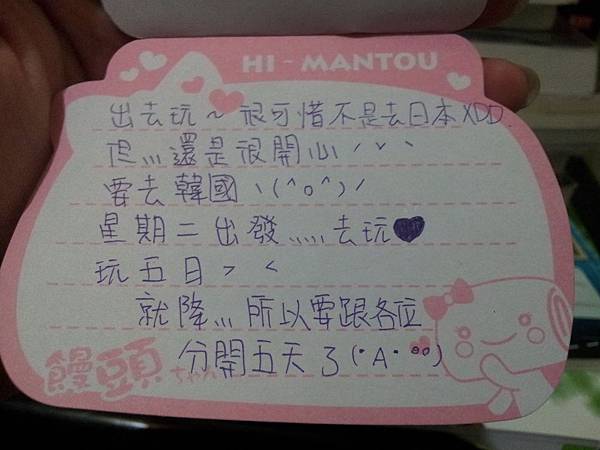 HI - MANTOU
出去玩～很可惜不是去日本XDD
但,,,還是很開心ˊˇˋ
要去韓國ヽ(^o^)ノ
星期二出發,,,,,去玩♥
玩五日> <
就降,,,所以要跟各位
分開五天了(·A·°°)
饅頭ちゃん